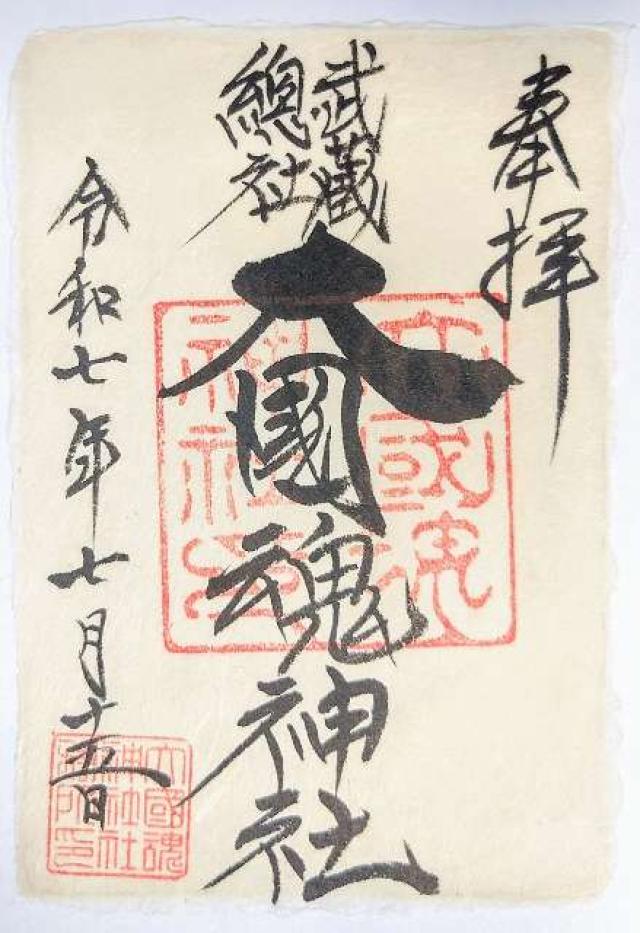 奉拝
武蔵
總社
大國魂神社
令和七年七月十五日
大國魂
神社印
大國魂
神社社
務所印